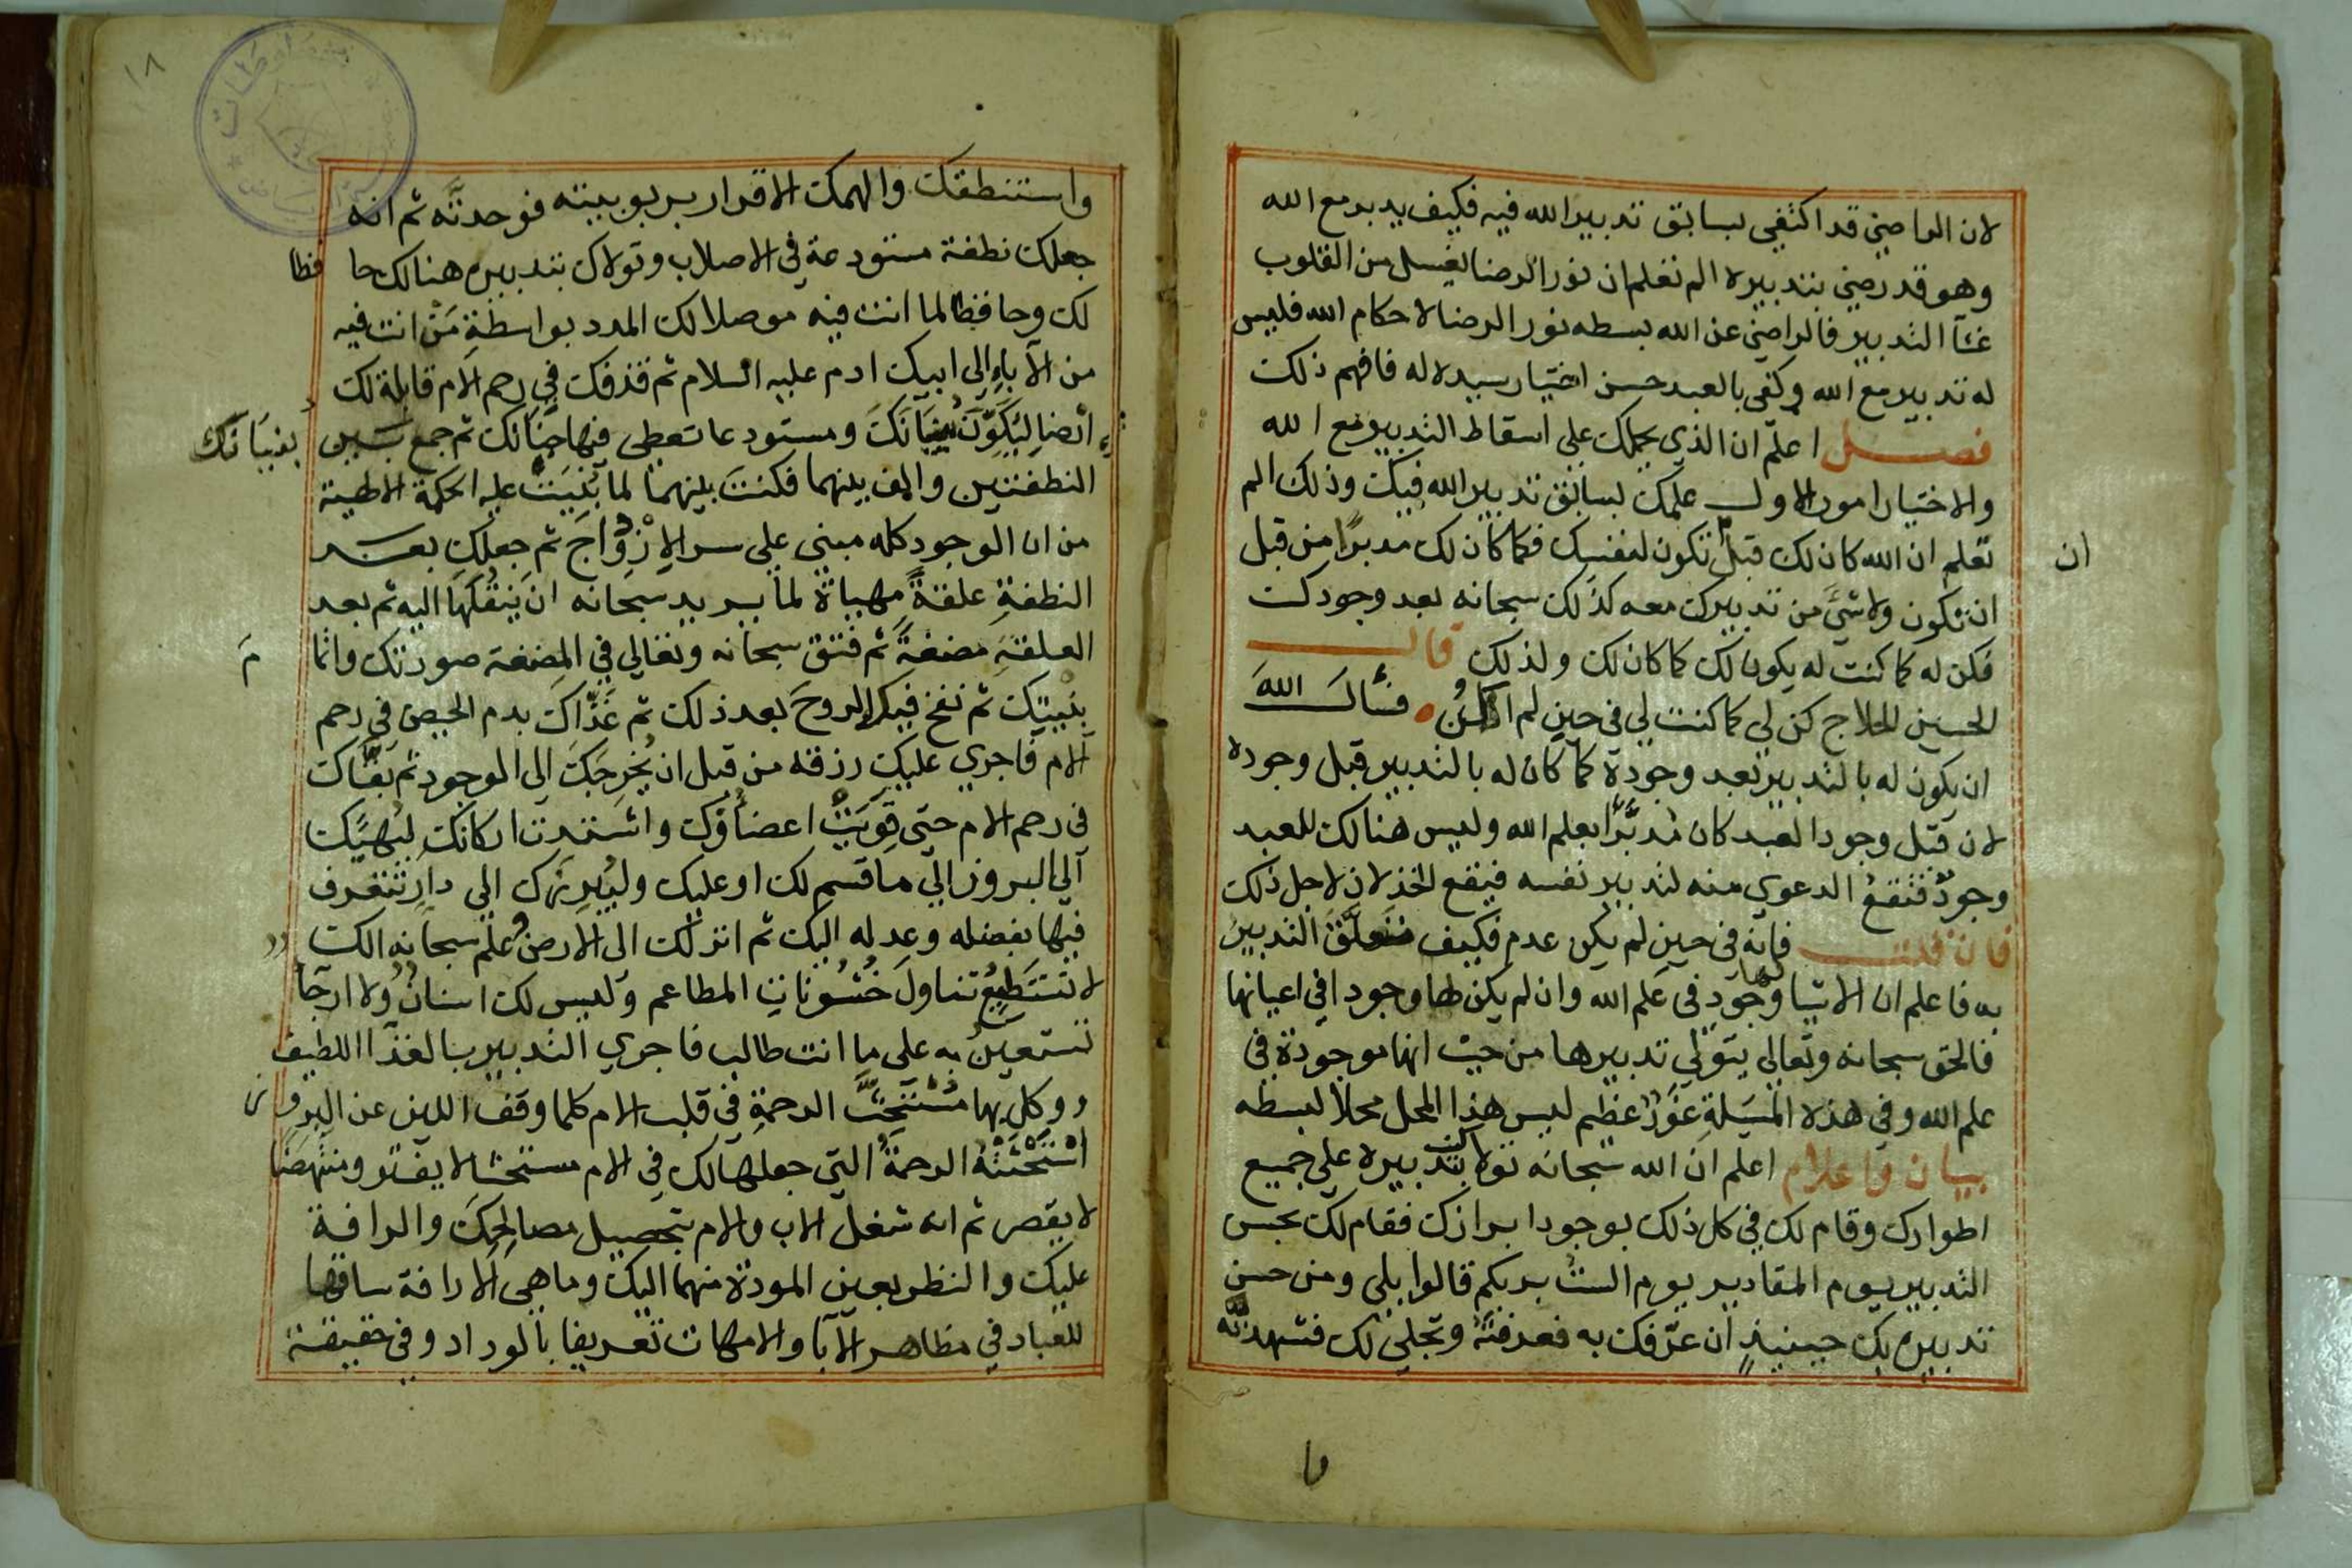 لان الراضي قد اكتفي بسابق تدبير الله فيه فكيف يدبر مع الله
وهو قد رضي بتدبيره الم تعلم ان نور الرضا يغسل من القلوب
غثآ التدبير فالراضي عن الله بسطه نور الرضا لاحكام الله فليس
له تدبير مع الله وكفي بالعبد حسن اختيار سيده له فافهم ذلك
فصل اعلم ان الذي يحملك علي اسقاط التدبير مع الله
والاختيار امور الاول علمك بسابق تدبير الله فيك وذلك الم
تعلم ان الله كان لك قبل تكون لنفسك فكما كان لك مدبرًا من قبل
ان
ان تكون ولا شيَ من تدبيرك معه كذلك سبحانه بعد وجودك
فكن له كما كنت له يكون لك كما كان لك ولذلك قال
الحسين الحلاج كن لي كما كنت لي في حين لم اكنُ فسأل اللهَ
ان يكون له بالتدبير بعد وجوده كما كان له بالتدبير قبل وجوده
لان قبل وجود العبد كان مُدبَّرًا بعلم الله وليس هنالك للعبد
وجودٌ فتقعُ الدعوي منه لتدبير نفسه فيقع الخذلان لاجل ذلك
فان قلت فانه في حين لم يكن عدم فكيف متعلَّقَ التدبيرُ
به فاعلم ان الاشيا لها وجود في علم الله وان لم يكن لها وجودا في اعيانها
فالحق سبحانه وتعالي يتولي تدبيرها من حيث انها موجودة في
علم الله وفي هذه المسَيلةِ غَوْرٌ عظيم ليس هذا المحل محلا لبسطه
بيان واعلام اعلم ان الله سبحانه تولاك بتدبيره علي جميع
اطوارك وقام لك في كل ذلك بوجود ابرازك فقام لك بحسن
التدبير يوم المقادير يوم الستُ بربكم قالوا بلي ومن حسن
تدبيره بك حينيذٍ ان عرّفك به فعرفتَهُ وتجلي لك فشهدتَّه
وا
١٨
واستنطقك والهمك الاقرار بربوبيته فوحدتَّه ثم انه
جعلك نطفة مستودعة في الاصلاب وتولاك بتدبيره هنالك حا فظا
لك وحافظا لما انت فيه موصلا لك المدد بواسطةِ مَنْ انت فيه
من الآباءِ الي ابيك ادم عليه السلام ثم قذفك في رحم الام قابلة لك
ارْضا ليَكَوِّنَ بنيَانَكَ ومستودعا تعطي فيها حياتك ثم جمع بين
بنيَانك
النطفتين والف بينهما فكنت بينهما لما بُنِيَتْ عليه الحكمة الالهية
من ان الوجود كله مبني علي سر الازْدِوَاجَ ثم جعلك بعد
النطفةِ علقةً مهياة لما يريد سبحانه ان يَنقُلَهَا اليه ثم بعد
العلقةِ مضغةً ثم فتق سبحانه وتعالي في المضغة صورتك واقا مَ
بنْيتك ثم نفخ فيك الروحَ بعد ذلك ثم غَذّاكَ بدم الحيض في رحم
الام فاجري عليك رزقه من قبل ان يُخرِجَكَ الي الوجود ثم بقّاك
في رحم الام حتي قَوِيَتْ اعضاؤك واشتدت اركانك ليُهيِّك
الي البروز الي ما قسم لك او عليك وليُبرِزك الي دارٍ تتعرف
فيها بفضله وعدله اليك ثم انزلك الي الارض وعلم سبحانه انك
لا تستَطِيعُ تناولَ خُشُوناتِ المطاعم وليس لك اسنانٌ ولا ارحآ
تستعينُ به علي ما انت طالب فاجري الثديين بالغذآ اللطيف
ووكل بهما مُسْتَحِثَّ الرحمةِ في قلب الام كلما وقف اللبن عن البرو ز
اسْتَحْثَتْهُ الرحمةُ التي جعلها لك في الام مستحثا لا يفتر ومنتهضًا
لا يقصر ثم انه شغل الاب والام بتحصيل مصالحِكَ والرافة
عليك والنظر بعين المودة منهما اليك وما هي الا رافة ساقها
للعباد في مظاهر الآبا والامهات تعريفا بالوداد وفي حقيقة